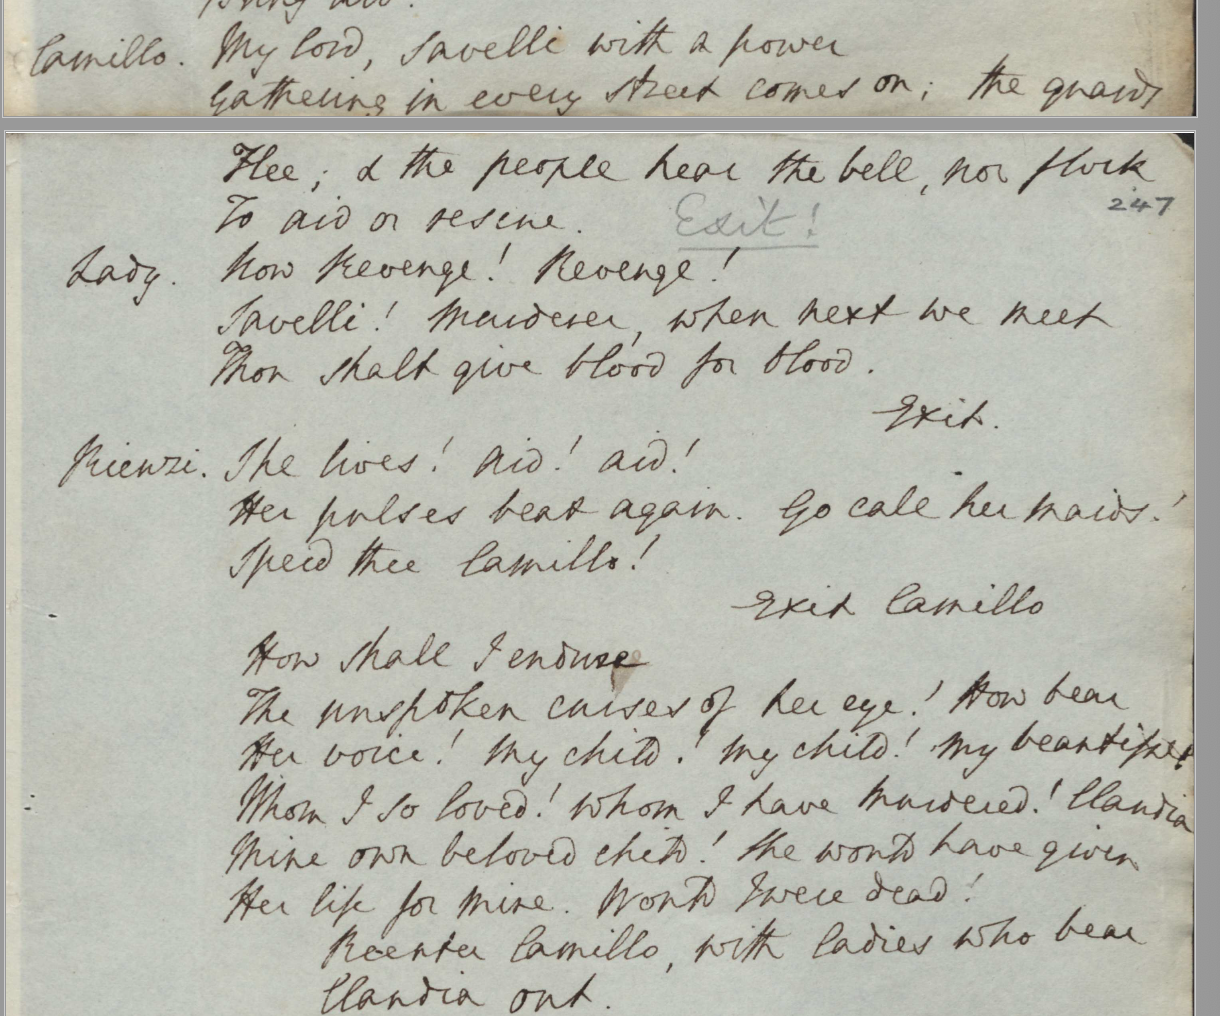 Camillo. My lord, Savelli with a power
Gathering in every street comes on; the guards
Flee; & the people hear the bell, nor flock
247
To aid or rescue. Exit!
Lady. Now Revenge! Revenge!
Savelli! Murderer, when next we meet
Thou shalt give blood for blood.
Exit.
Rienzi. She lives! Aid! aid!
Her pulses beat again. Go call her maids!
Speed thee Camillo!
Exit Camillo
How shall I endure
The unspoken curses of her eye! How bear
Her voice! My child! My child! My beautiful!
Whom I so loved! whom I have murdered! Claudia
Mine own beloved child! She would have given
Her life for mine. Would I were dead!
Reenter Camillo, with ladies who bear
Claudia out.